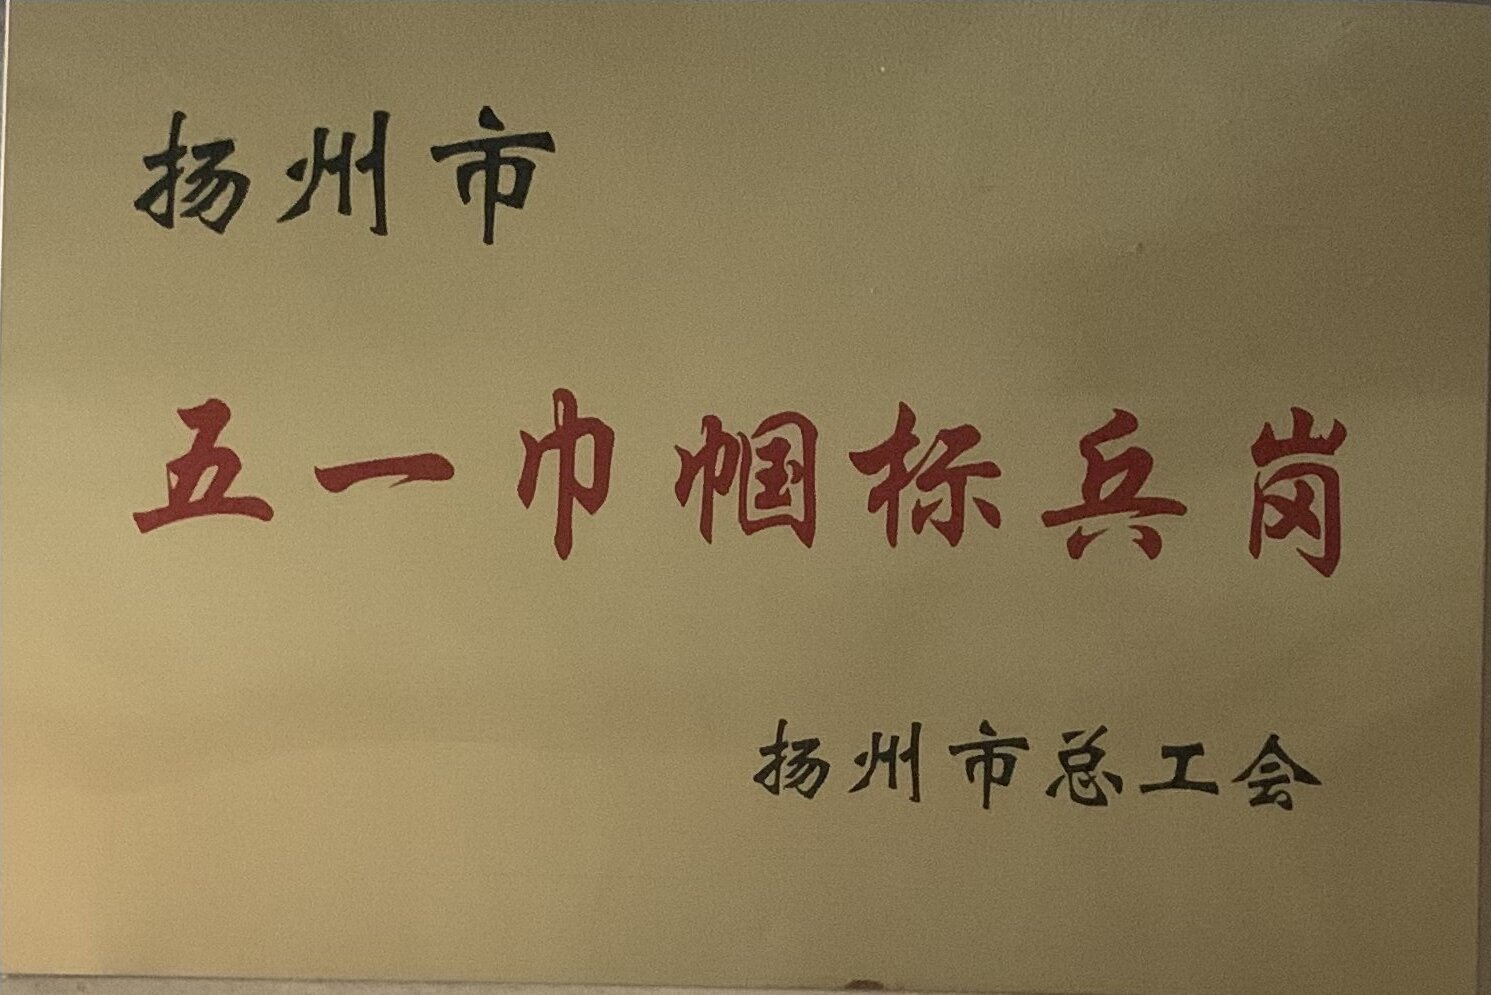 扬州市
五一巾帼标兵岗
扬州市总工会